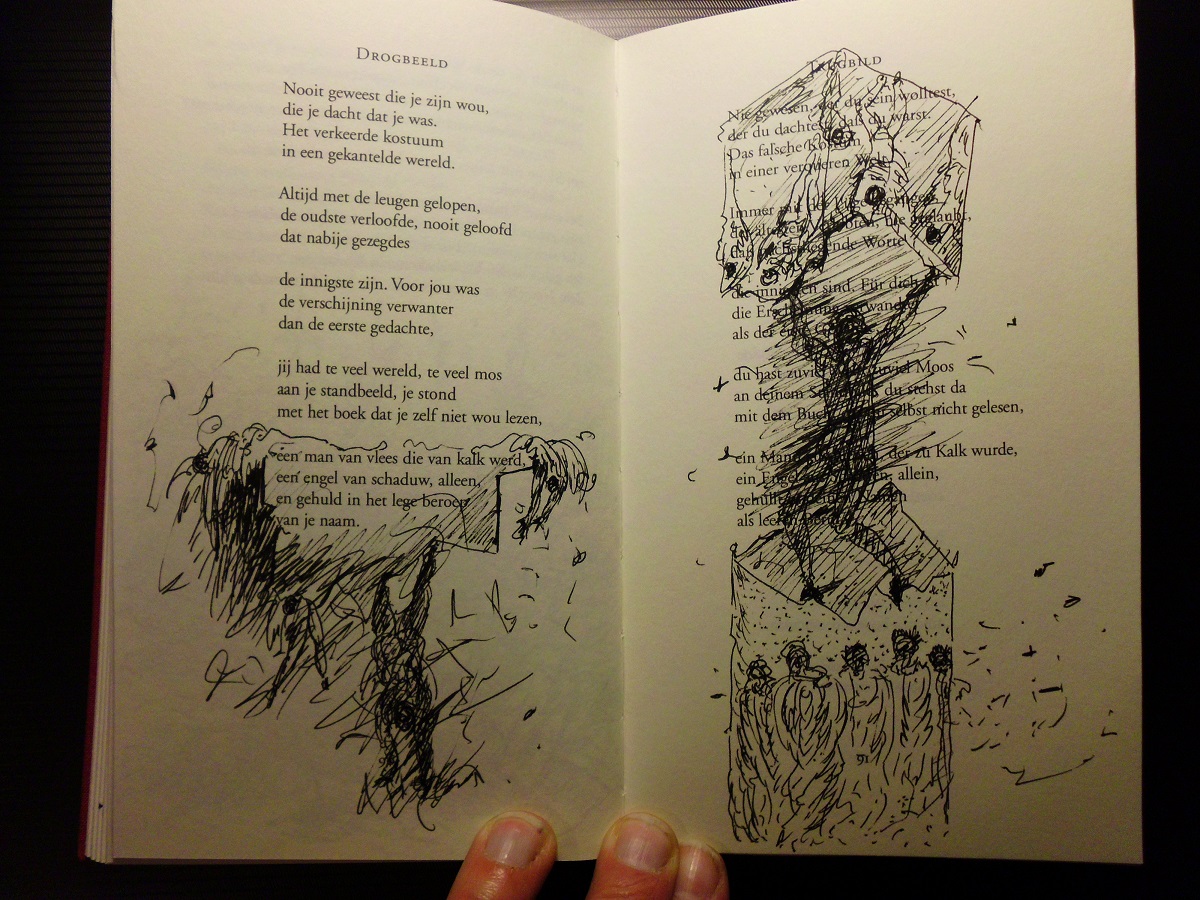 DROGBEELD
Nooit geweest die je zijn wou,
die je dacht dat je was.
Het verkeerde kostuum
in een gekantelde wereld.
Altijd met de leugen gelopen,
de oudste verloofde, nooit geloofd
dat nabije gezegdes
de innigste zijn. Voor jou was
de verschijning verwanter
dan de eerste gedachte,
jij had te veel wereld, te veel mos
aan je standbeeld, je stond
met het boek dat je zelf niet wou lezen,
een man van vlees die van kalk werd,
een engel van schaduw, alleen,
en gehuld in het lege beroep
van je naam.
TRUGBILD
Nie gewesen, der du sein wolltest,
der du dachtest, daß du warst.
Das falsche Kostüm
in einer verqueren Welt.
Immer mit der
der
Worte
die innigsten sind. Für dich
die
als der
du hast zuviel zuviel Moos
an deinem du stehst da
mit dem Buch, selbst nicht gelesen,
ein Mann der zu Kalk wurde,
ein Engel allein,
gehüllt
als
91